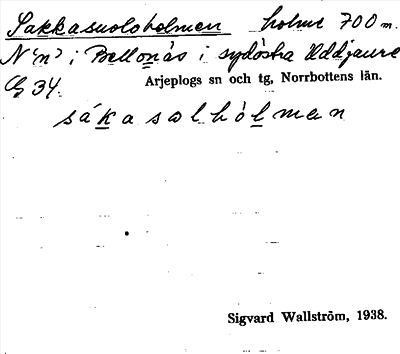 Sakkasuoloholmen holme 700 m.
N "n" i Bellonäs i sydöstra Uddjaure
34.
Arjeplogs sn och tg, Norrbottens län.
sákasolhólman
Sigvard Wallström, 1938.